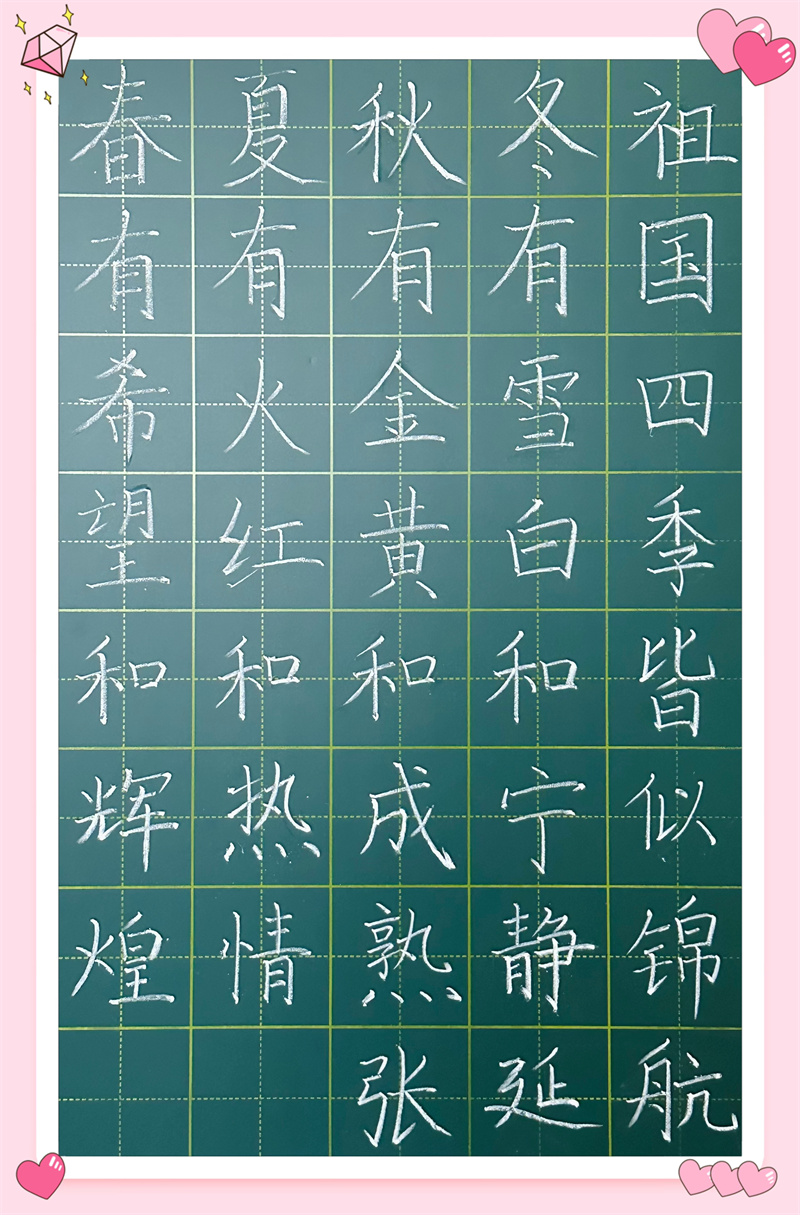 春有希望和辉煌
夏有火红和热情
秋有金黄和成熟
冬有雪白和宁静
祖国四季皆似锦
张延航